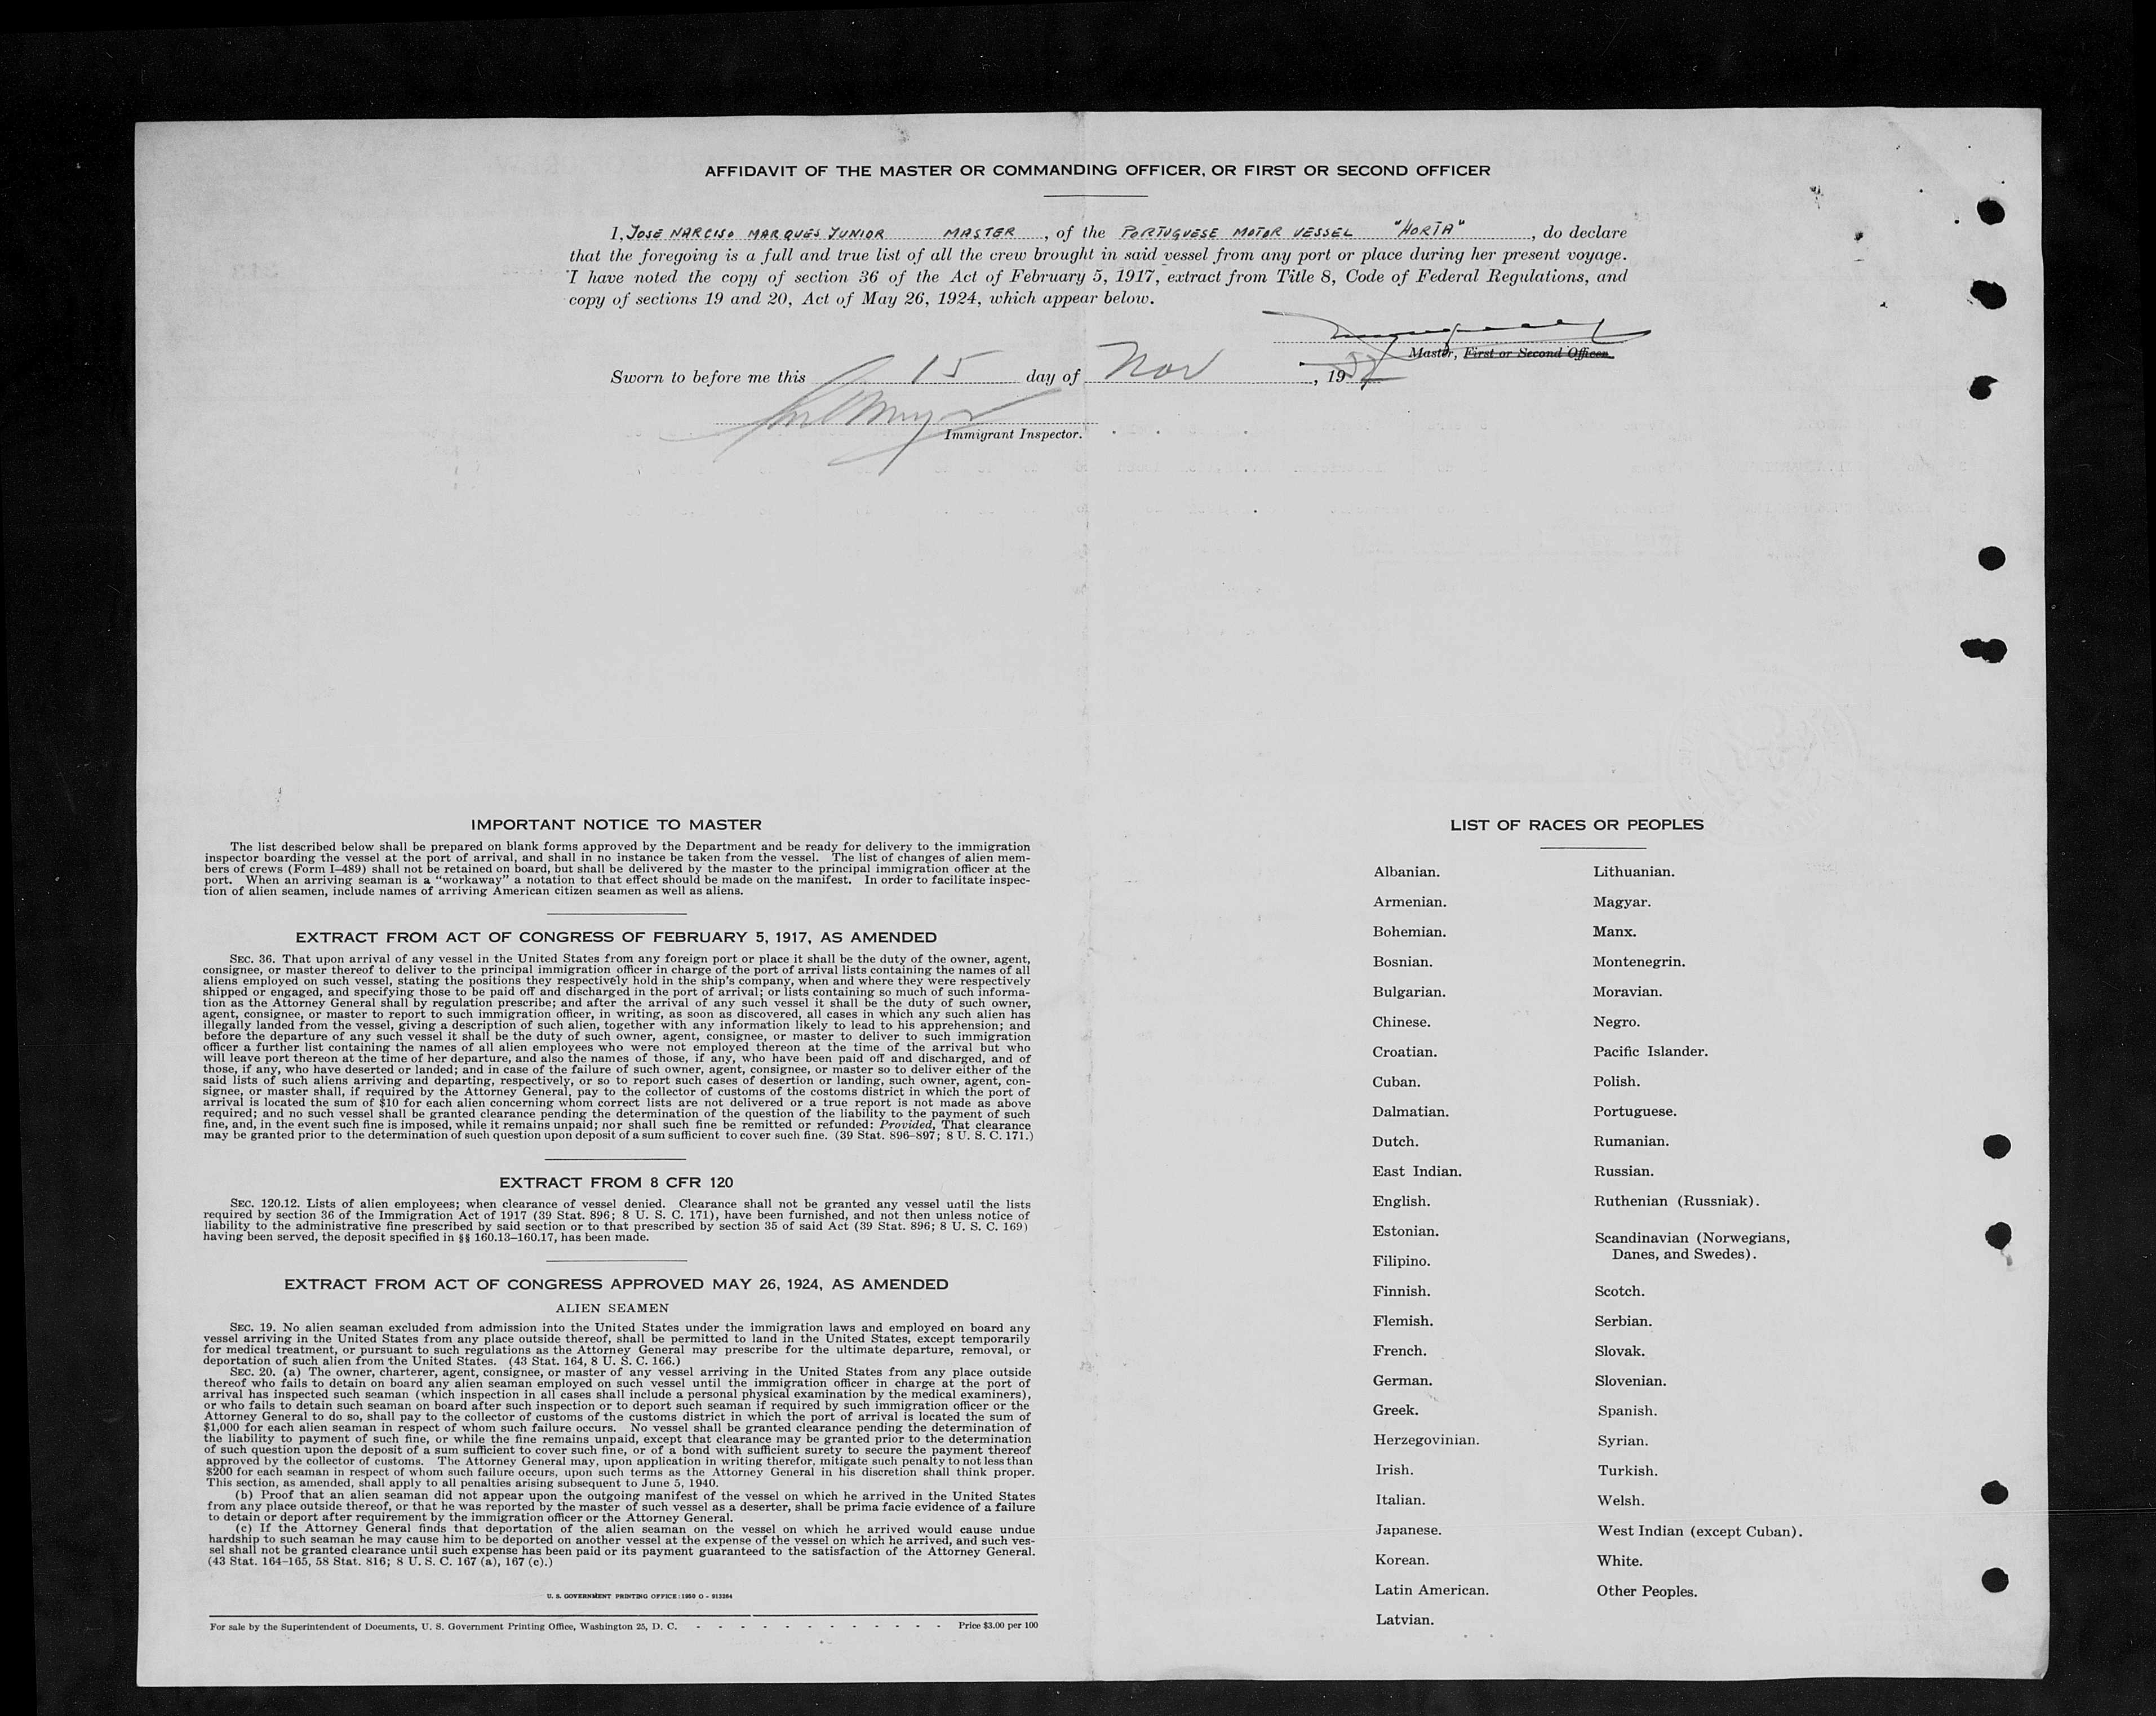 AFFIDAVIT OF THE MASTER OR COMMANDING OFFICER, OR FIRST OR SECOND OFFICER
I, JOSE NARCISO MARQUES JUNIOR MASTER, of the PORTUGUESE MOTOR VESSEL "HORTA", do declare
that the foregoing is a full and true list of all the crew brought in said vessel from any port or place during her present voyage.
I have noted the copy of section 36 of the Act of February 5, 1917, extract from Title 8, Code of Federal Regulations, and
copy of sections 19 and 20, Act of May 26, 1924, which appear below.
Master, First or Second Officer.
Sworn to before me this 15 day of Nov, 19
Immigrant Inspector.
IMPORTANT NOTICE TO MASTER
The list described below shall be prepared on blank forms approved by the Department and be ready for delivery to the immigration
inspector boarding the vessel at the port of arrival, and shall in no instance be taken from the vessel. The list of changes of alien mem-
bers of crews (Form I–489) shall not be retained on board, but shall be delivered by the master to the principal immigration officer at the
port. When an arriving seaman is a "workaway" a notation to that effect should be made on the manifest. In order to facilitate inspec-
tion of alien seamen, include names of arriving American citizen seamen as well as aliens.
EXTRACT FROM ACT OF CONGRESS OF FEBRUARY 5, 1917, AS AMENDED
SEC. 36. That upon arrival of any vessel in the United States from any foreign port or place it shall be the duty of the owner, agent,
consignee, or master thereof to deliver to the principal immigration officer in charge of the port of arrival lists containing the names of all
aliens employed on such vessel, stating the positions they respectively hold in the ship's company, when and where they were respectively
shipped or engaged, and specifying those to be paid off and discharged in the port of arrival; or lists containing so much of such informa-
tion as the Attorney General shall by regulation prescribe; and after the arrival of any such vessel it shall be the duty of such owner,
agent, consignee, or master to report to such immigration officer, in writing, as soon as discovered, all cases in which any such alien has
illegally landed from the vessel, giving a description of such alien, together with any information likely to lead to his apprehension; and
before the departure of any such vessel it shall be the duty of such owner, agent, consignee, or master to deliver to such immigration
officer a further list containing the names of all alien employees who were not employed thereon at the time of the arrival but who
will leave port thereon at the time of her departure, and also the names of those, if any, who have been paid off and discharged, and of
those, if any, who have deserted or landed; and in case of the failure of such owner, agent, consignee, or master so to deliver either of the
said lists of such aliens arriving and departing, respectively, or so to report such cases of desertion or landing, such owner, agent, con-
signee, or master shall, if required by the Attorney General, pay to the collector of customs of the costoms district in which the port of
arrival is located the sum of $10 for each alien concerning whom correct lists are not delivered or a true report is not made as above
required; and no such vessel shall be granted clearance pending the determination of the question of the liability to the payment of such
fine, and, in the event such fine is imposed, while it remains unpaid; nor shall such fine be remitted or refunded: Provided, That clearance
may be granted prior to the determination of such question upon deposit of a sum sufficient to cover such fine. (39 Stat. 896–897; 8 U. S. C. 171.)
EXTRACT FROM 8 CFR 120
SEC. 120.12. Lists of alien employees; when clearance of vessel denied. Clearance shall not be granted any vessel until the lists
required by section 36 of the Immigration Act of 1917 (39 Stat. 896; 8 U. S. C. 171), have been furnished, and not then unless notice of
liability to the administrative fine prescribed by said section or to that prescribed by section 35 of said Act (39 Stat. 896; 8 U. S. C. 169)
having been served, the deposit specified in §§ 160.13–160.17, has been made.
EXTRACT FROM ACT OF CONGRESS APPROVED MAY 26, 1924, AS AMENDED
ALIEN SEAMEN
SEC. 19. No alien seaman excluded from admission into the United States under the immigration laws and employed on board any
vessel arriving in the United States from any place outside thereof, shall be permitted to land in the United States, except temporarily
for medical treatment, or pursuant to such regulations as the Attorney General may prescribe for the ultimate departure, removal, or
deportation of such alien from the United States. (43 Stat. 164, 8 U. S. C. 166.)
SEC. 20. (a) The owner, charterer, agent, consignee, or master of any vessel arriving in the United States from any place outside
thereof who fails to detain on board any alien seaman employed on such vessel until the immigration officer in charge at the port of
arrival has inspected such seaman (which inspection in all cases shall include a personal physical examination by the medical examiners),
or who fails to detain such seaman on board after such inspection or to deport such seaman if required by such immigration officer or the
Attorney General to do so, shall pay to the collector of customs of the customs district in which the port of arrival is located the sum of
$1,000 for each alien seaman in respect of whom such failure occurs. No vessel shall be granted clearance pending the determination of
the liability to payment of such fine, or while the fine remains unpaid, except that clearance may be granted prior to the determination
of such question upon the deposit of a sum sufficient to cover such fine, or of a bond with sufficient surety to secure the payment thereof
approved by the collector of customs. The Attorney General may, upon application in writing therefor, mitigate such penalty to not less than
$200 for each seaman in respect of whom such failure occurs, upon such terms as the Attorney General in his discretion shall think proper.
This section, as amended, shall apply to all penalties arising subsequent to June 5, 1940.
(b) Proof that an alien seaman did not appear upon the outgoing manifest of the vessel on which he arrived in the United States
from any place outside thereof, or that he was reported by the master of such vessel as a deserter, shall be prima facie evidence of a failure
to detain or deport after requirement by the immigration officer or the Attorney General.
(c) If the Attorney General finds that deportation of the alien seaman on the vessel on which he arrived would cause undue
hardship to such seaman he may cause him to be deported on another vessel at the expense of the vessel on which he arrived, and such ves-
sel shall not be granted clearance until such expense has been paid or its payment guaranteed to the satisfaction of the Attorney General.
(43 Stat. 164–165, 58 Stat. 816; 8 U. S. C. 167 (a), 167 (c).)
U. S. GOVERNMENT PRINTING OFFICE: 1950 O - 913264
For sale by the Superintendent of Documents, U. S. Government Printing Office, Washington 25, D. C. - - - - - - - - - - - - Price $3.00 per 100
LIST OF RACES OR PEOPLES
Albanian.
Armenian.
Bohemian.
Bosnian.
Bulgarian.
Chinese.
Croatian.
Cuban.
Dalmatian.
Dutch.
East Indian.
English.
Estonian.
Filipino.
Finnish.
Flemish.
French.
German.
Greek.
Herzegovinian.
Irish.
Italian.
Japanese.
Korean.
Latin American.
Latvian.
Lithuanian.
Magyar.
Manx.
Montenegrin.
Moravian.
Negro.
Pacific Islander.
Polish.
Portuguese.
Rumanian.
Russian.
Ruthenian (Russniak).
Scandinavian (Norwegians,
Danes, and Swedes).
Scotch.
Serbian.
Slovak.
Slovenian.
Spanish.
Syrian.
Turkish.
Welsh.
West Indian (except Cuban).
White.
Other Peoples.